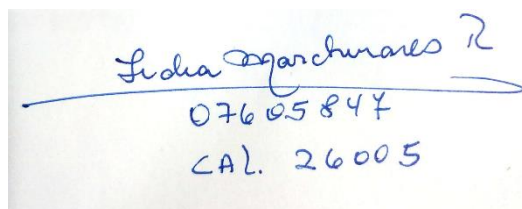 Lidia Marchinares R
07605847
CAL. 26005